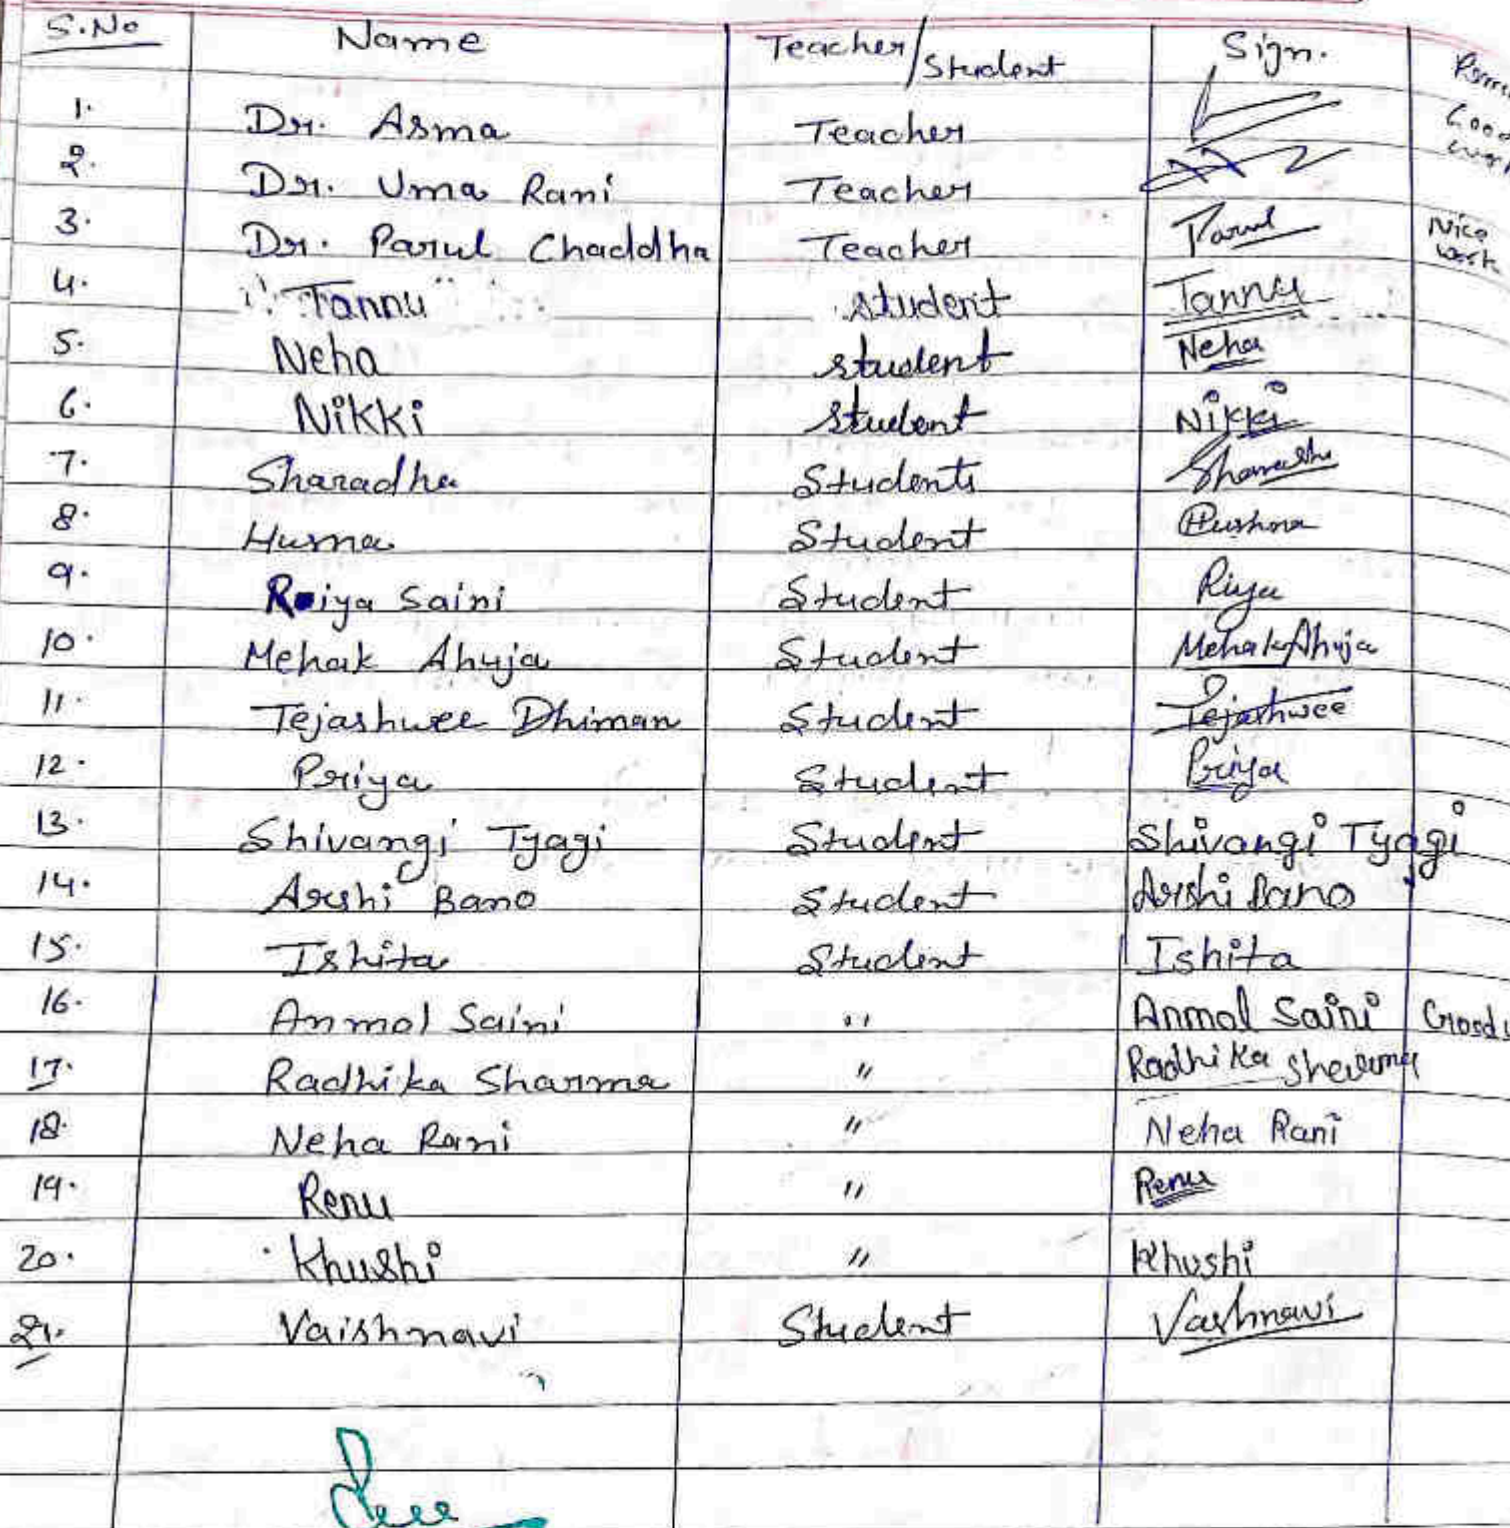 S.No Name Teacher/Student Sign.
1. Dr. Asma Teacher Good work
2. Dr. Uma Rani Teacher
3. Dr. Parul Chaddha Teacher Parul Nice work
4. Tannu student Tannu
5. Neha student Neha
6. Nikki student Nikki
7. Sharadha Students
8. Husna Student Hushna
9. Riya Saini Student Riya
10. Mehak Ahuja Student Mehak Ahuja
11. Tejashwee Dhiman Student Tejashwee
12. Priya Student Priya
13. Shivangi Tyagi Student Shivangi Tyagi
14. Arshi Bano Student Arshi Bano
15. Ishita Student Ishita
16. Anmol Saini " Anmol Saini Good
17. Radhika Sharma " Radhika Sharma
18. Neha Rani " Neha Rani
19. Renu " Renu
20. Khushi " Khushi
21. Vaishnavi Student Vashnavi